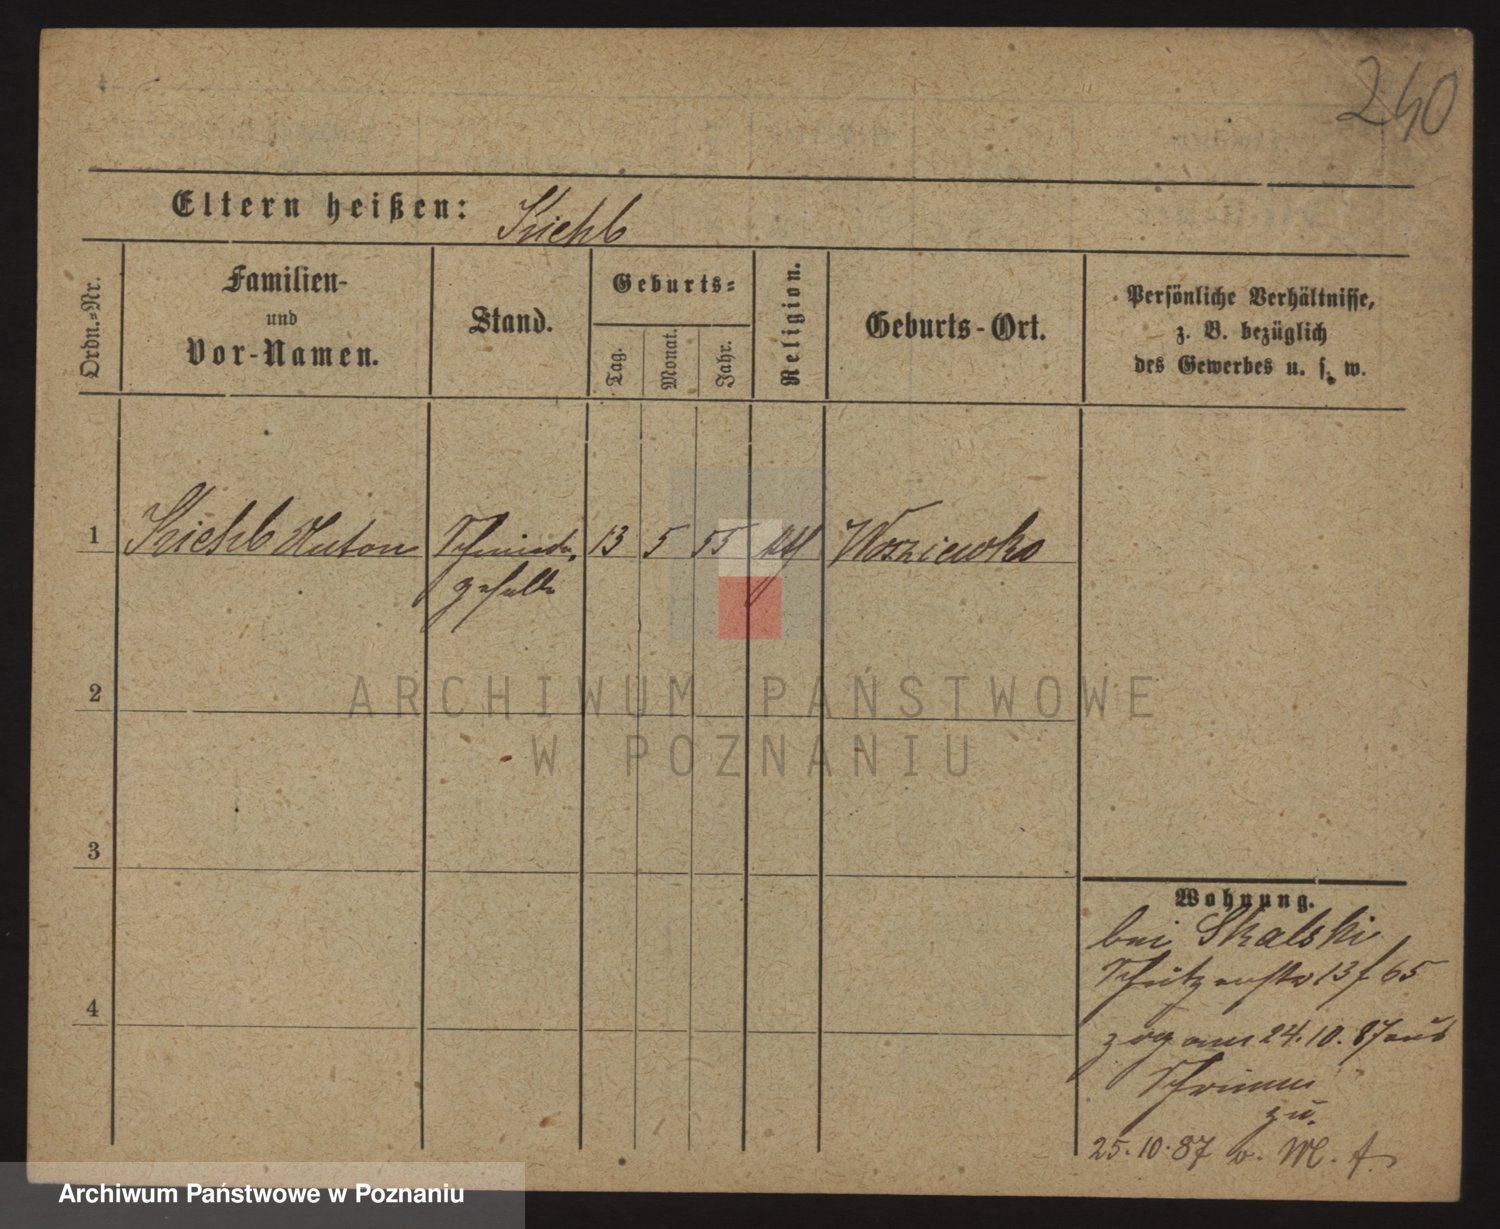 240
Eltern heißen: Kiehl
Ordn.=Nr.
Familien-
und
Vor-Namen.
Stand.
Geburts=
Tag.
Monat.
Jahr.
Religion.
Geburts-Ort.
Persönliche Verhältnisse,
z. B. bezüglich
des Gewerbes u. s. w.
1 Anton Schmiede 13 5 55
geselle
2
ARCHIWUM PAŃSTWOWE
W POZNANIU
3
Wohnung.
bei Skalski
Schützenstr 13 65
4
zog am 24.10.87 aus
Schrimm
zu.
25.10.87
Archiwum Państwowe w Poznaniu